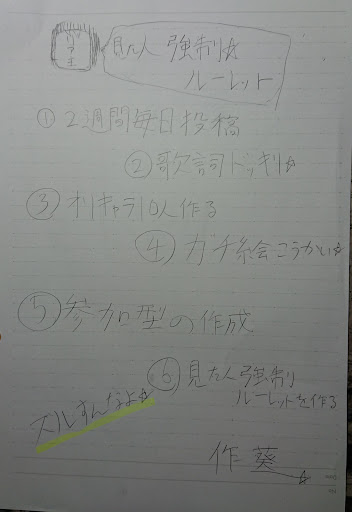 見た人強制☆
ルーレット
①2週間毎日投稿
②歌詞ドッキリ☆
③オリキャラ10人作る
④ガチ絵会こうかい☆
⑤参加型の作成
⑥見た人強制
ルーレットを作る
ズルすんなよ☆
作葵